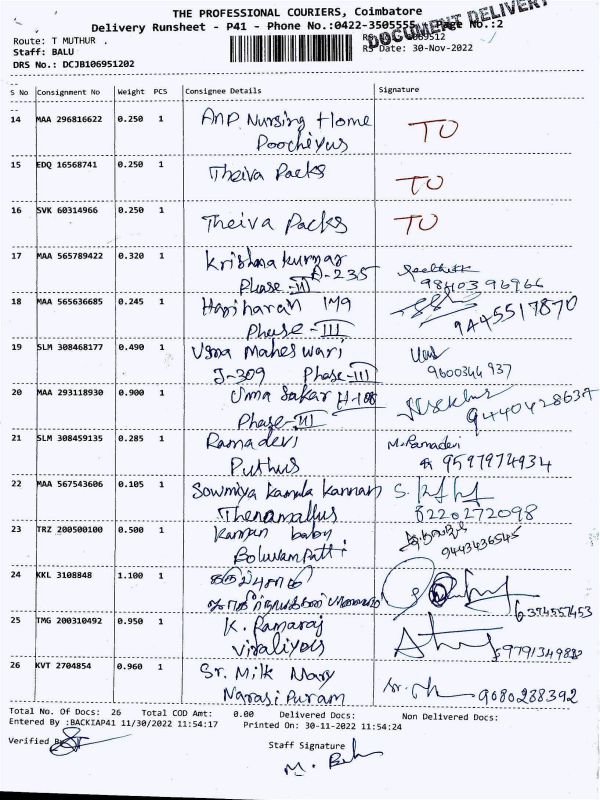 THE PROFESSIONAL COURIERS, Coimbatore
DOCUMENT DELIVERY
Delivery Runsheet - P41 - Phone No.:0422-3505555, Page No.:2
Route: T MUTHUR .
Staff: BALU
RS Date: 30-Nov-2022
DRS No.: DCJB106951202
S No Consignment No Weight PCS Consignee Details Signature
14 MAA 296816622 0.250 1 ANP Nursing Home TO
Poochiyus
15 EDQ 16568741 0.250 1 Theiva Packs TO
16 SVK 60314966 0.250 1 Theiva Packs TO
17 MAA 565789422 0.320 1 Krishna kumar
A-235
Phase-III 98403 96966
18 MAA 565636685 0.245 1 Hariharan 149
Phase-III 9445517870
19 SLM 308468177 0.490 1 Uma Maheswari Uma
J-309 Phase-III 9600344937
20 MAA 293118930 0.900 1 Uma Sakar H-108
Phase-III 9440428637
21 SLM 308459135 0.285 1 Ramadevi M. Ramadevi
Puthus 9597974934
22 MAA 567543606 0.105 1 Sowmiya kamala kannan S.
Thenamallus 8220272098
23 TRZ 200500100 0.500 1 Kannan baby
Boluvampatti 9443436545
24 KKL 3108848 1.100 1
6374557453
25 TMG 200310492 0.950 1 K. Ramaraj
Viraliyois 9791349882
26 KVT 2704854 0.960 1 Sr. Milk Mary
Narasipuram 9080288392
Total No. Of Docs: 26 Total COD Amt: 0.00 Delivered Docs: Non Delivered Docs:
Entered By :BACKIAP41 11/30/2022 11:54:17 Printed On: 30-11-2022 11:54:24
Verified By
Staff Signature